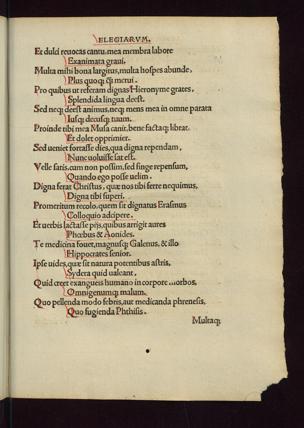 ELEGIARVM.
Et dulci reuocas cantu, mea membra labore
Exanimata graui.
Multa mihi bona largitus, multa hospes abunde,
Plus quoq; q̃ merui.
Pro quibus ut referam dignas Hieronyme grates,
Splendida lingua deest.
Sed neq; deest animus, neq; mens mea in omne parata
Iusq; decusq; tuum.
Proinde tibi mea Musa canit, bene factaq; librat.
Et dolet opprimier.
Sed ueniet fortasse dies, qua digna rependam,
Nunc uoluisse sat est.
Velle satis, cum non possim, sed finge repensum,
Quando ego posse uelim.
Digna ferat Christus, quæ nos tibi ferre nequimus,
Digna tibi superi.
Promeritum recolo, quem sit dignatus Erasmus
Colloquio adcipere.
Et uerbis lactasse pijs, quibus arrigit aures
Phœbus & Aonides.
Te medicina fouet, magnusq; Galenus, & illo
Hippocrates senior.
Ipse uides, quæ sit natura potentibus astris,
Sydera quid ualeant,
Quid creet exangueis humano in corpore morbos,
Omnigenumq; malum.
Quo pellenda modo febris, aut medicanda phrenesis,
Quo fugienda Phthisis.
Multaq;